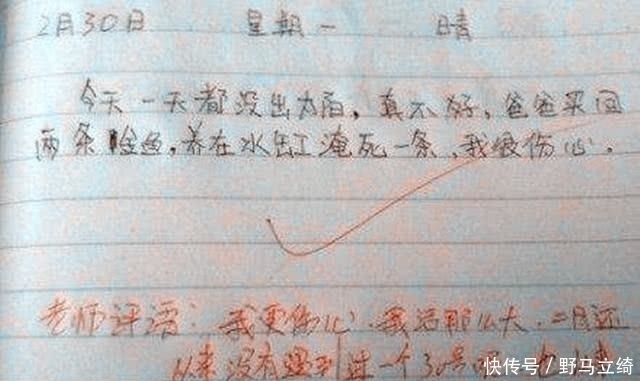 2月30日 星期一 晴
今天一天都没出太阳，真不好，爸爸买回
两条金鱼，养在水缸淹死一条，我很伤心。
老师评语：我更伤心，我活那么大，二月还
从来没有遇到过一个30号
快传号／野马立绮